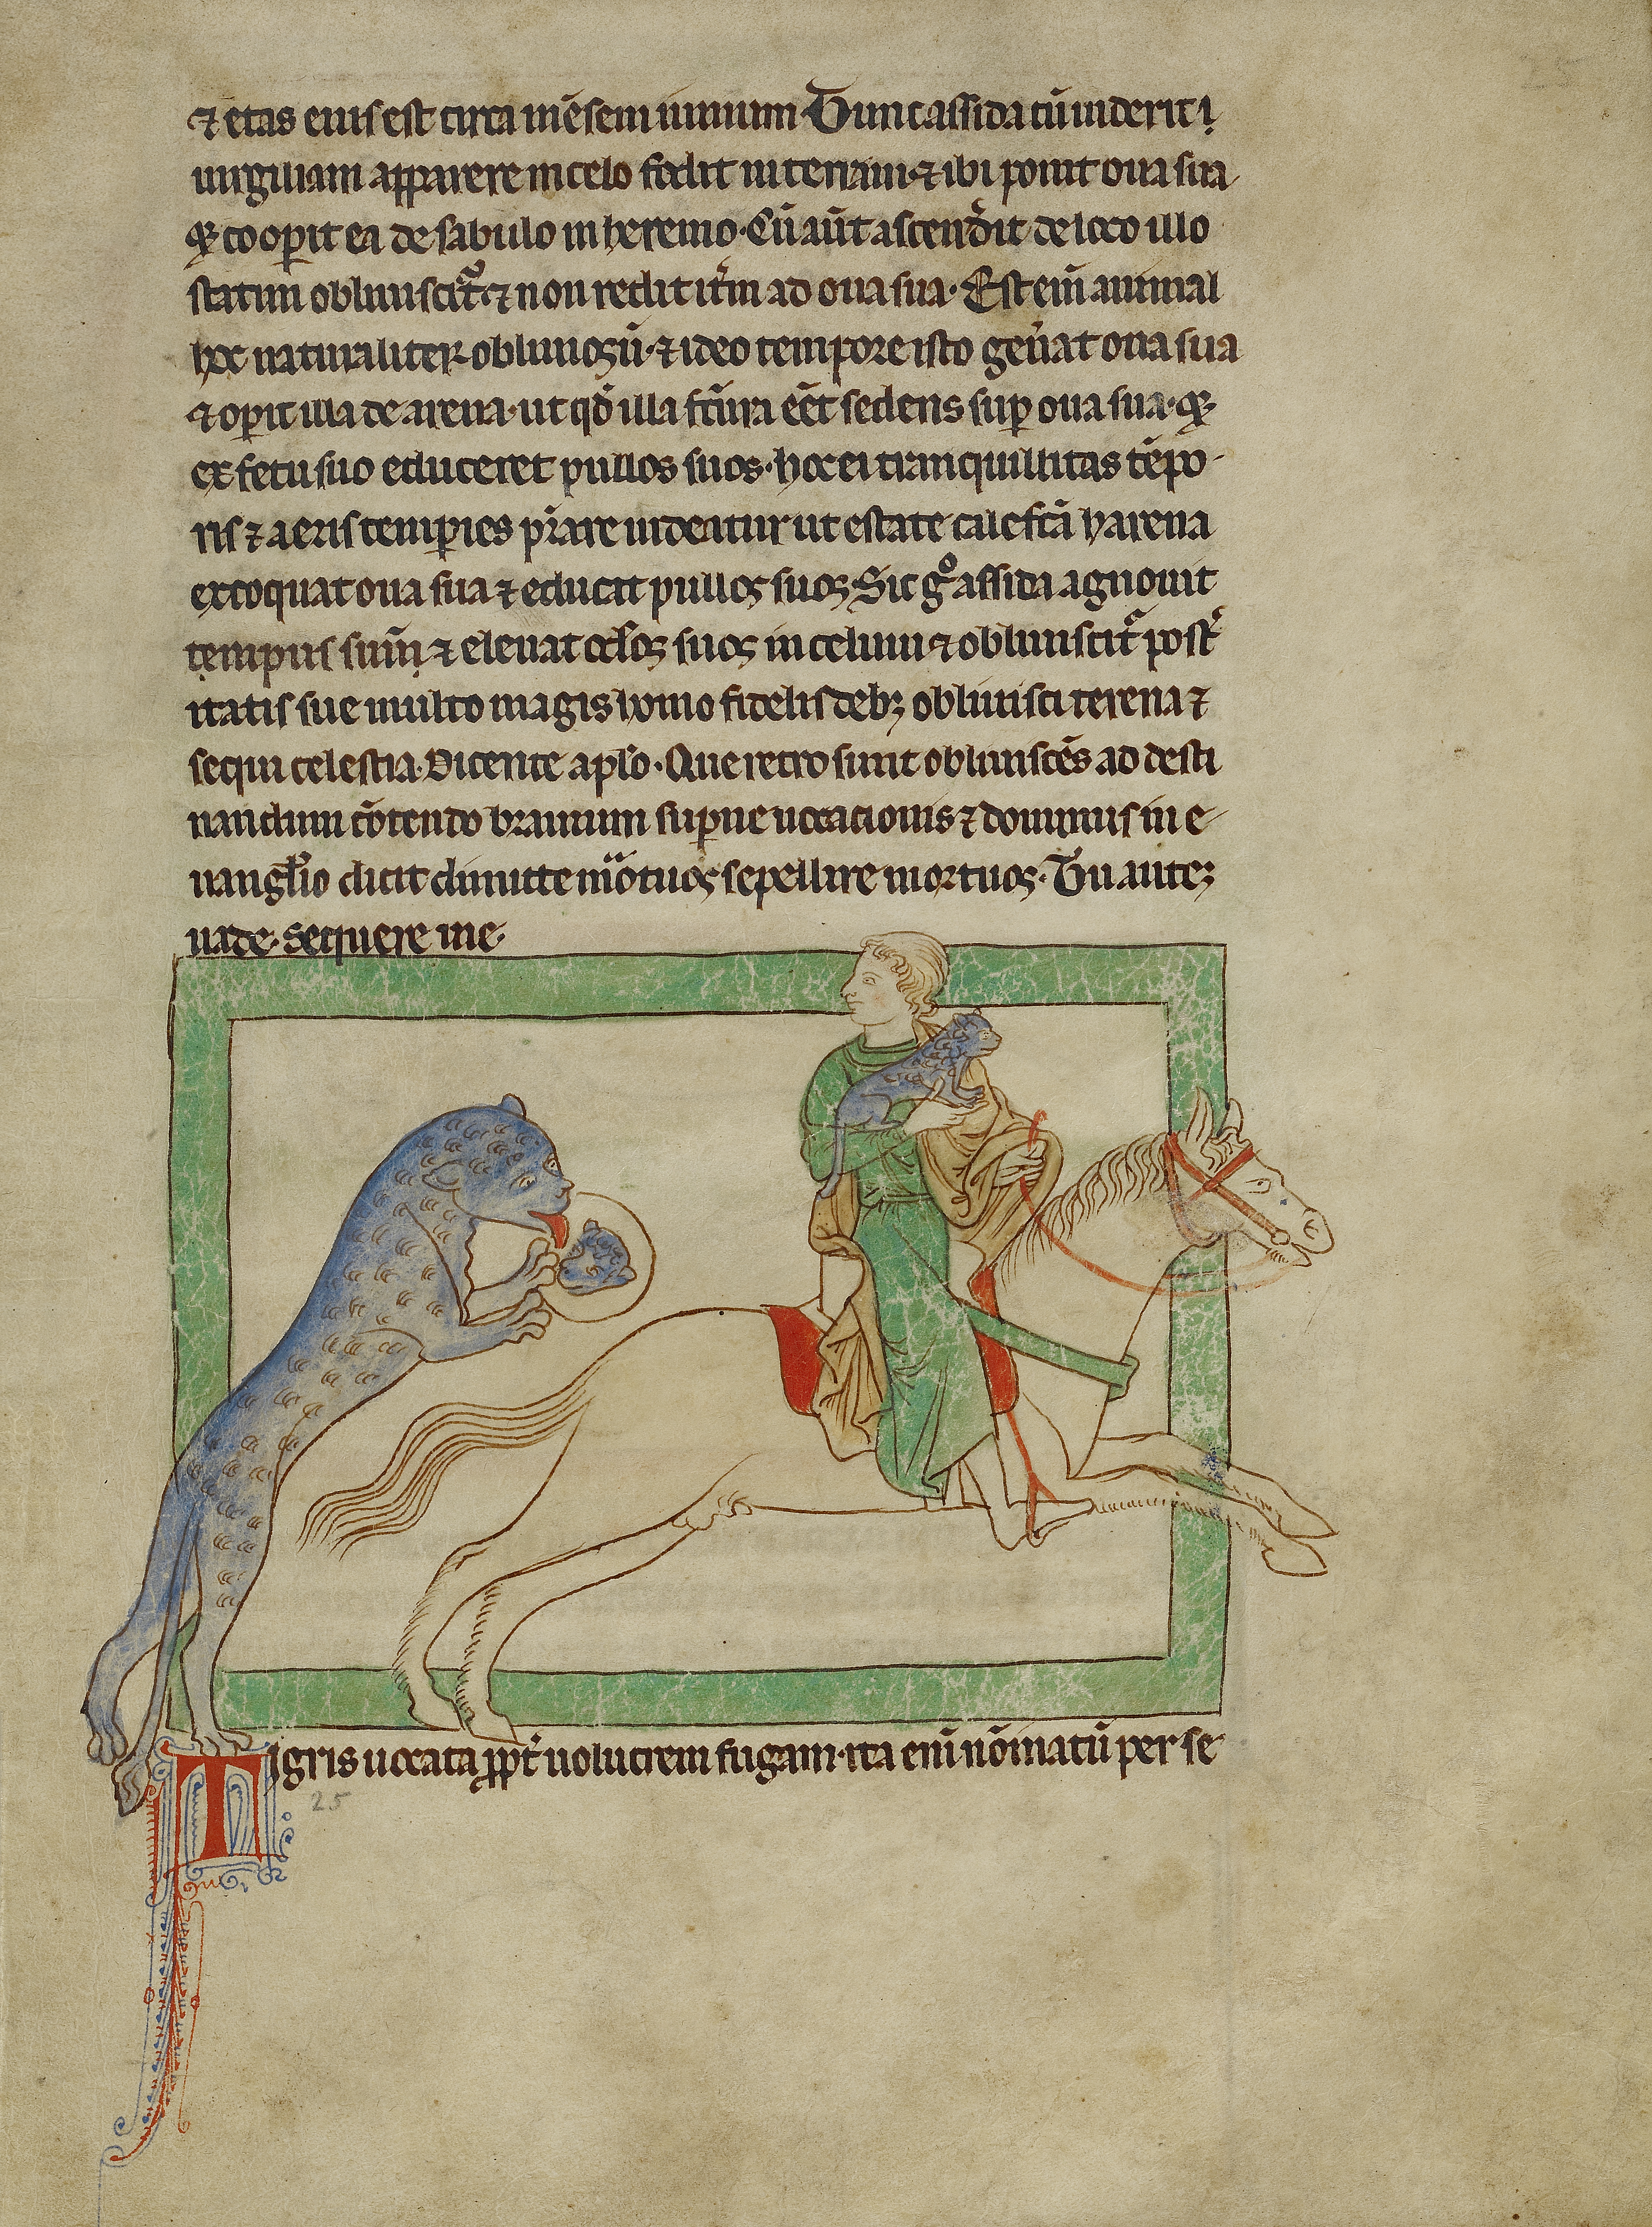 ⁊ etas eius est circa mēsem iunium Tunc assida cū uiderit i
uirgiliam apparere in celo fodit in terram·⁊ ibi ponit oua sua
⁊ cooꝑit ea de sabulo in heremo·Cū aūt ascenderit de loco illo
statim obliuiscit᷑ ⁊ non redit itm̄ ad oua sua· Est eni᷑ animal
hoc naturaliter obliuiosū·⁊ ideo tempore isto gen̄at oua sua
⁊ oꝑit illa de arena·ut qd̄ illa fc̄ura eēt sedens suꝑ oua sua·
ex fetu suo educeret pullos suos·hoc ei tranquillitas tēpo
ris ⁊ aeris temꝑies p̄stare uideatur ut estate calefc̄a harena
excoquat oua sua ⁊ educat pullos suos·Sic gͦ assida agnouit
tempus suū ⁊ eleuat oclōs suos in celum ⁊ obliuiscit᷑ post̾
itatis sue multo magis homo fidelis debꝫ obliuisci terena ⁊
sequi celestia·Dicente aplō·Que retro sunt obliuiscēs ad desti
nandum cōtendo brauium suꝑne uocacionis ⁊ dominus in e
uanglīo dicit dimitte mōtuos sepellire mortuos·Tu autēꝫ
uade·sequere me·
Tigris uocata ꝓpt̄ uolucrem fugam·ita eni᷑ nōinatū per se
25